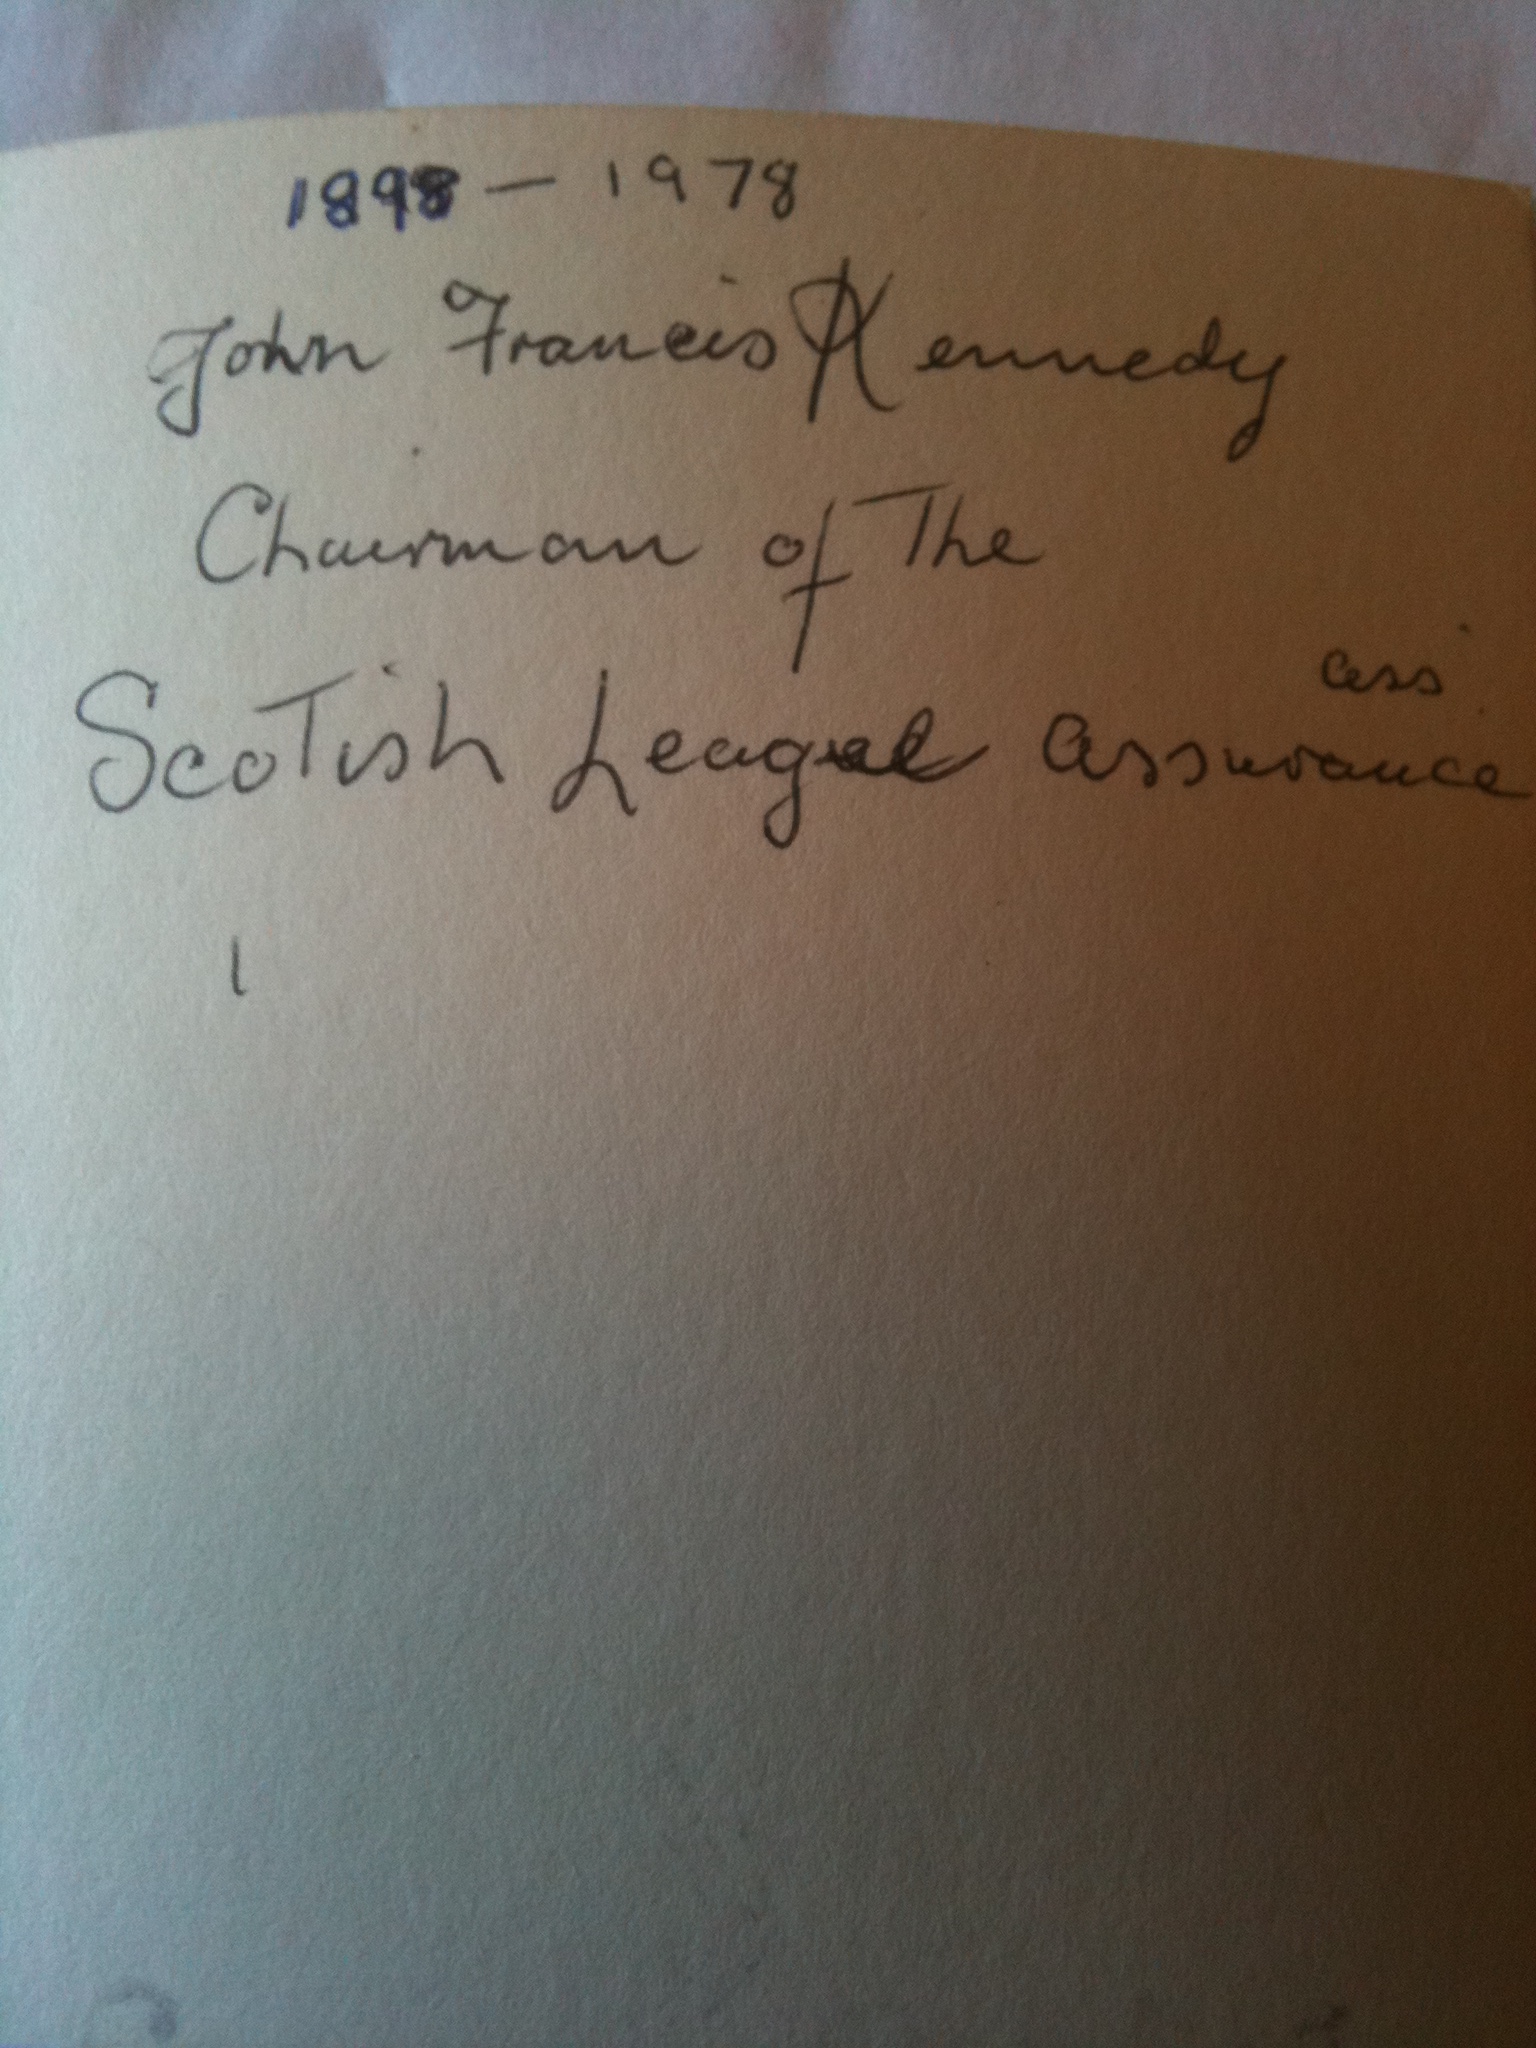 1898 - 1978
John Francis Kennedy
Chairman of The
ass
Scotish Leagal assurance